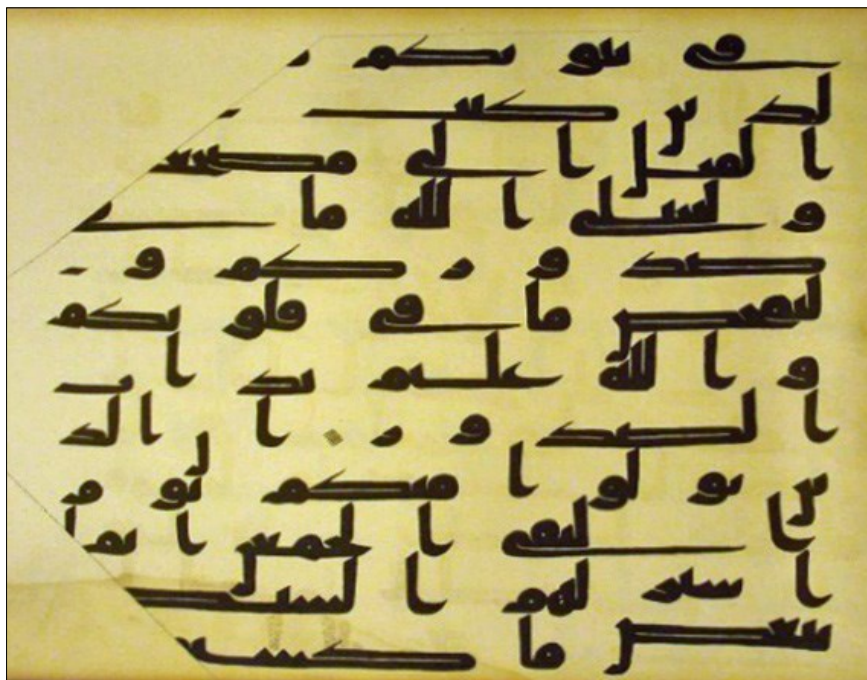 في بيوتكم
لذين كتب
القتل الى مضجع
وليبتلي الله ما في
صدوركم و
ليمحص ما في قلوبكم
والله عليم بذات
الصدور ان الذ
ين تولوا منكم يوم
التقى الجمعن انما
استزلهم الشيط
ببعض ما كسب